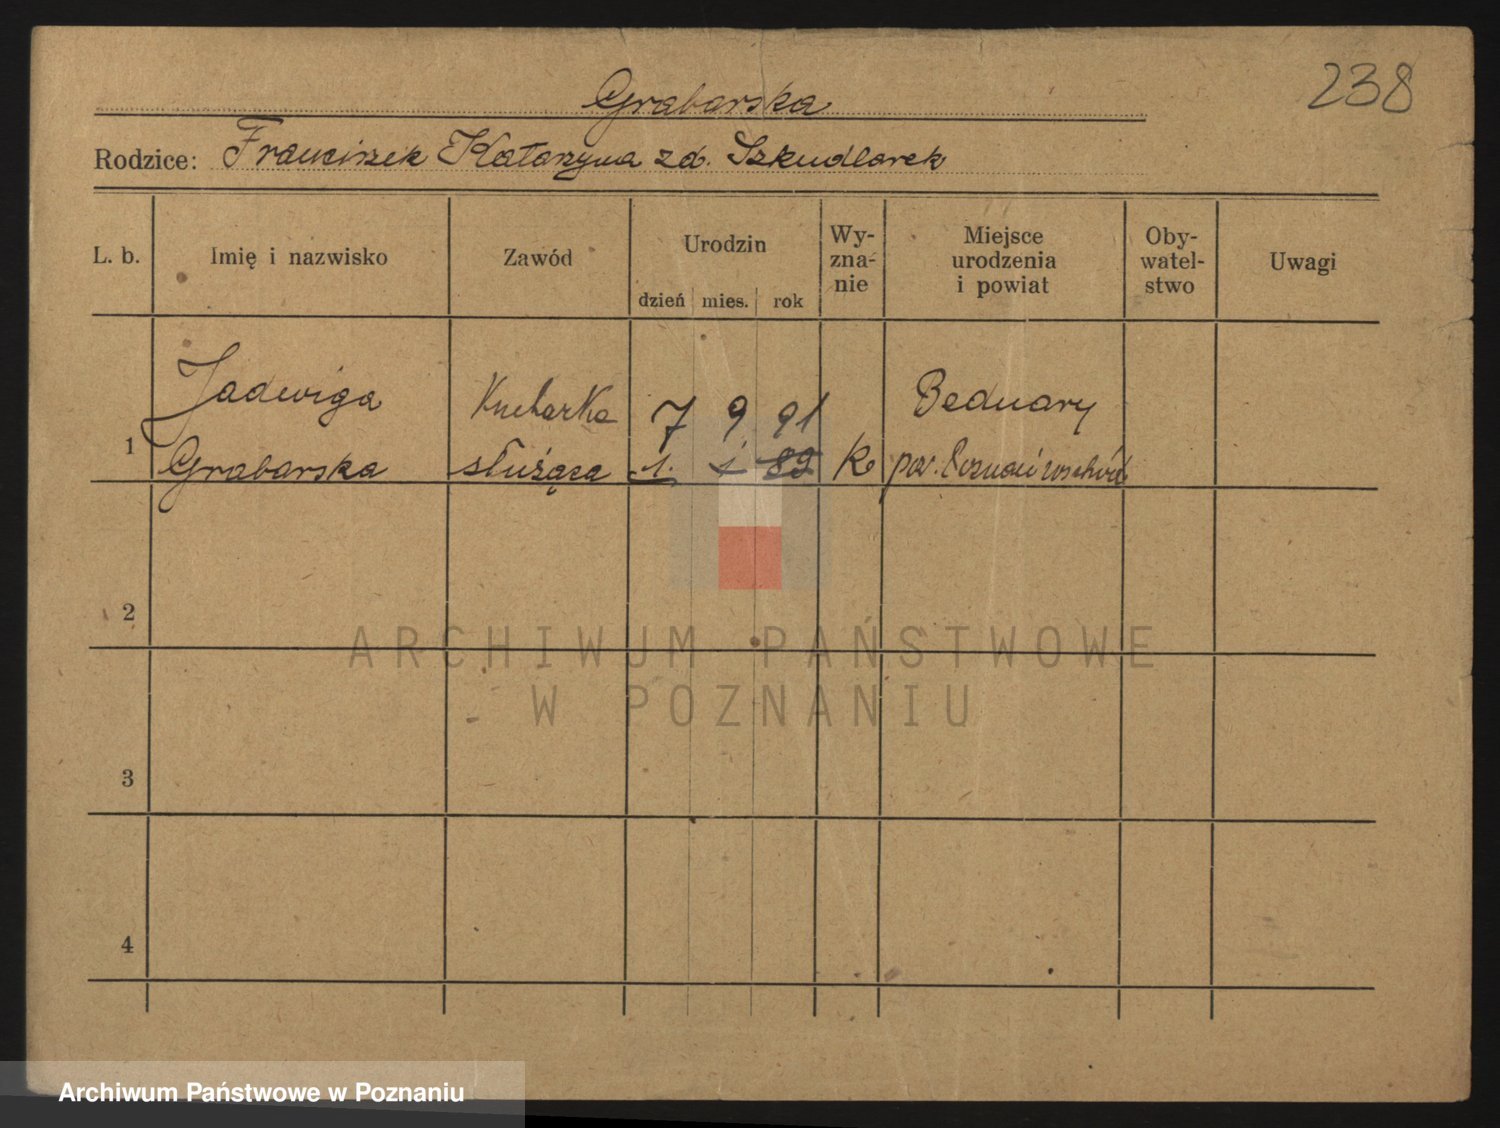 238
Grabarska
Rodzice: Franciszek Katarzyna zd. Szkudlarek
L. b. Imię i nazwisko Zawód Urodzin dzień mies. rok Wy-zna-nie Miejsce urodzenia i powiat Oby-watel-stwo Uwagi
Jadwiga Kucharka 7 9 91 Bednary
1 Grabarska służąca 1. 1. 89 k pow. Poznań wschód
2
3
4
ARCHIWUM PAŃSTWOWE
W POZNANIU
Archiwum Państwowe w Poznaniu